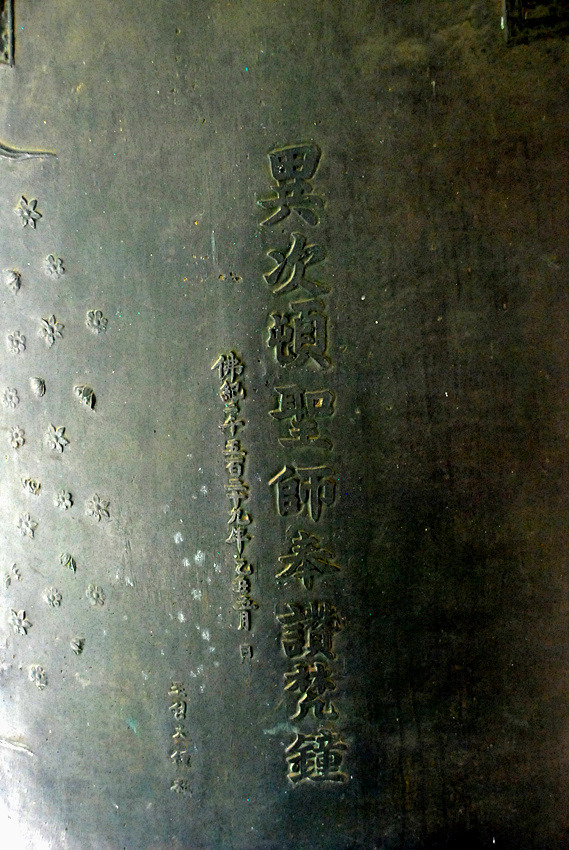 異次頓聖師奉讚梵鐘
佛紀二千五百二十九年乙丑 月 日